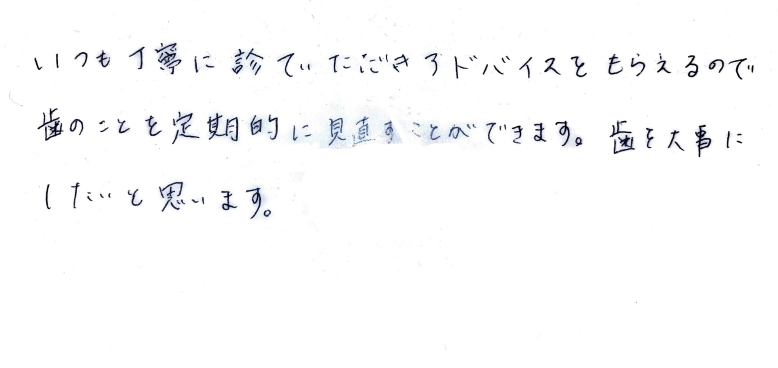 いつも丁寧に診ていただきアドバイスをもらえるので
歯のことを定期的に見直すことができます。歯を大事に
したいと思います。